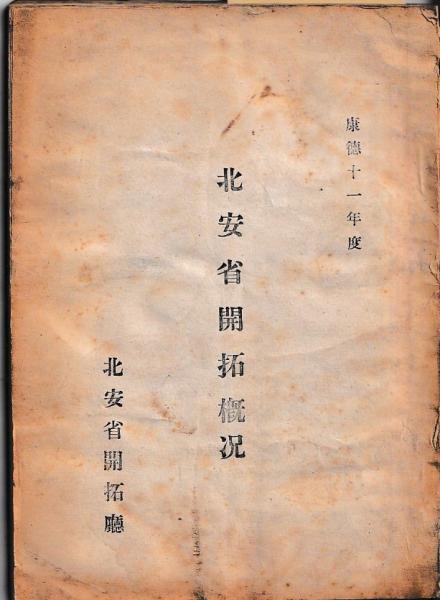 康德十一年度
北安省開拓概况
北安省開拓廳